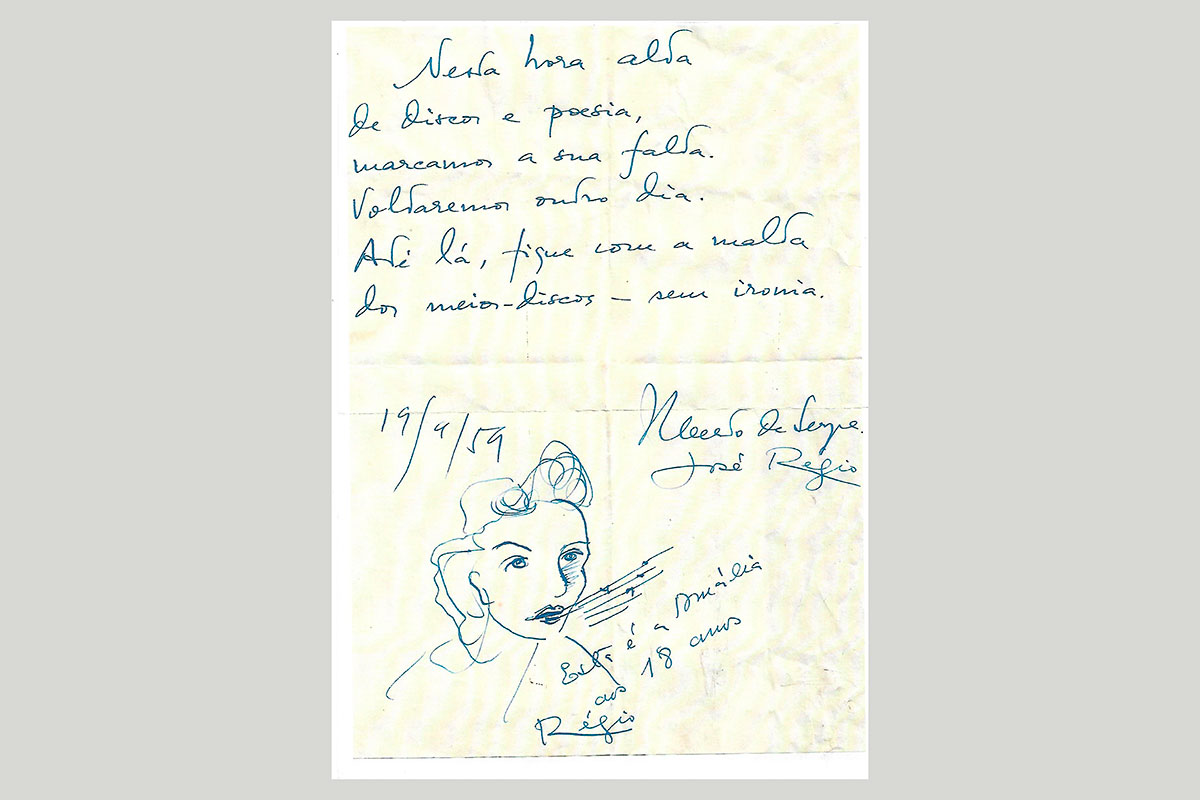 Nesta hora alta
de discos e poesia,
marcamos a sua falta.
Voltaremos outro dia.
Até lá, fique com a malta
dos meios-discos – sem ironia.
19/9/59
de Serpa.
José Régio
Esta é a Amália
aos 18 anos
Régio